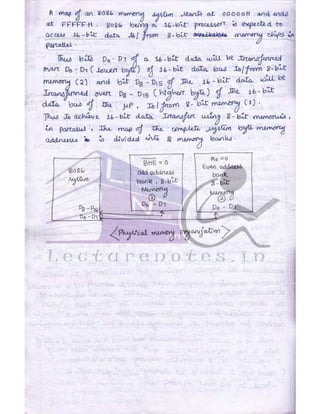 A map of an 8086 memory system starts at 00000H and ends
at FFFFFH. 8086 being a 16-bit processor is expected to
access 16-bit data to/from 8-bit memory chips in
parallel.
Thus bits D0-D7 of a 16-bit data will be transferred
over D0-D7 (lower byte) of 16-bit data bus to/from 8-bit
memory (2) and bit D8-D15 of the 16-bit data will be
transferred over the D8-D15 (higher byte) of the 16-bit
data bus of the μP, to/from 8-bit memory (1).
Thus to achieve 16-bit data transfer using 8-bit memories,
in parallel, the map of the complete system byte memory
addresses is divided into 2 memory banks.
8086
system
D8-D15
D0-D7
BHE = 0
odd address
bank, 8-bit
Memory
①
D8-D7
A0 = 0
Even address
bank
8-bit
Memory
②
D0-D8
<Physical memory organization>
Lecturenotes.in